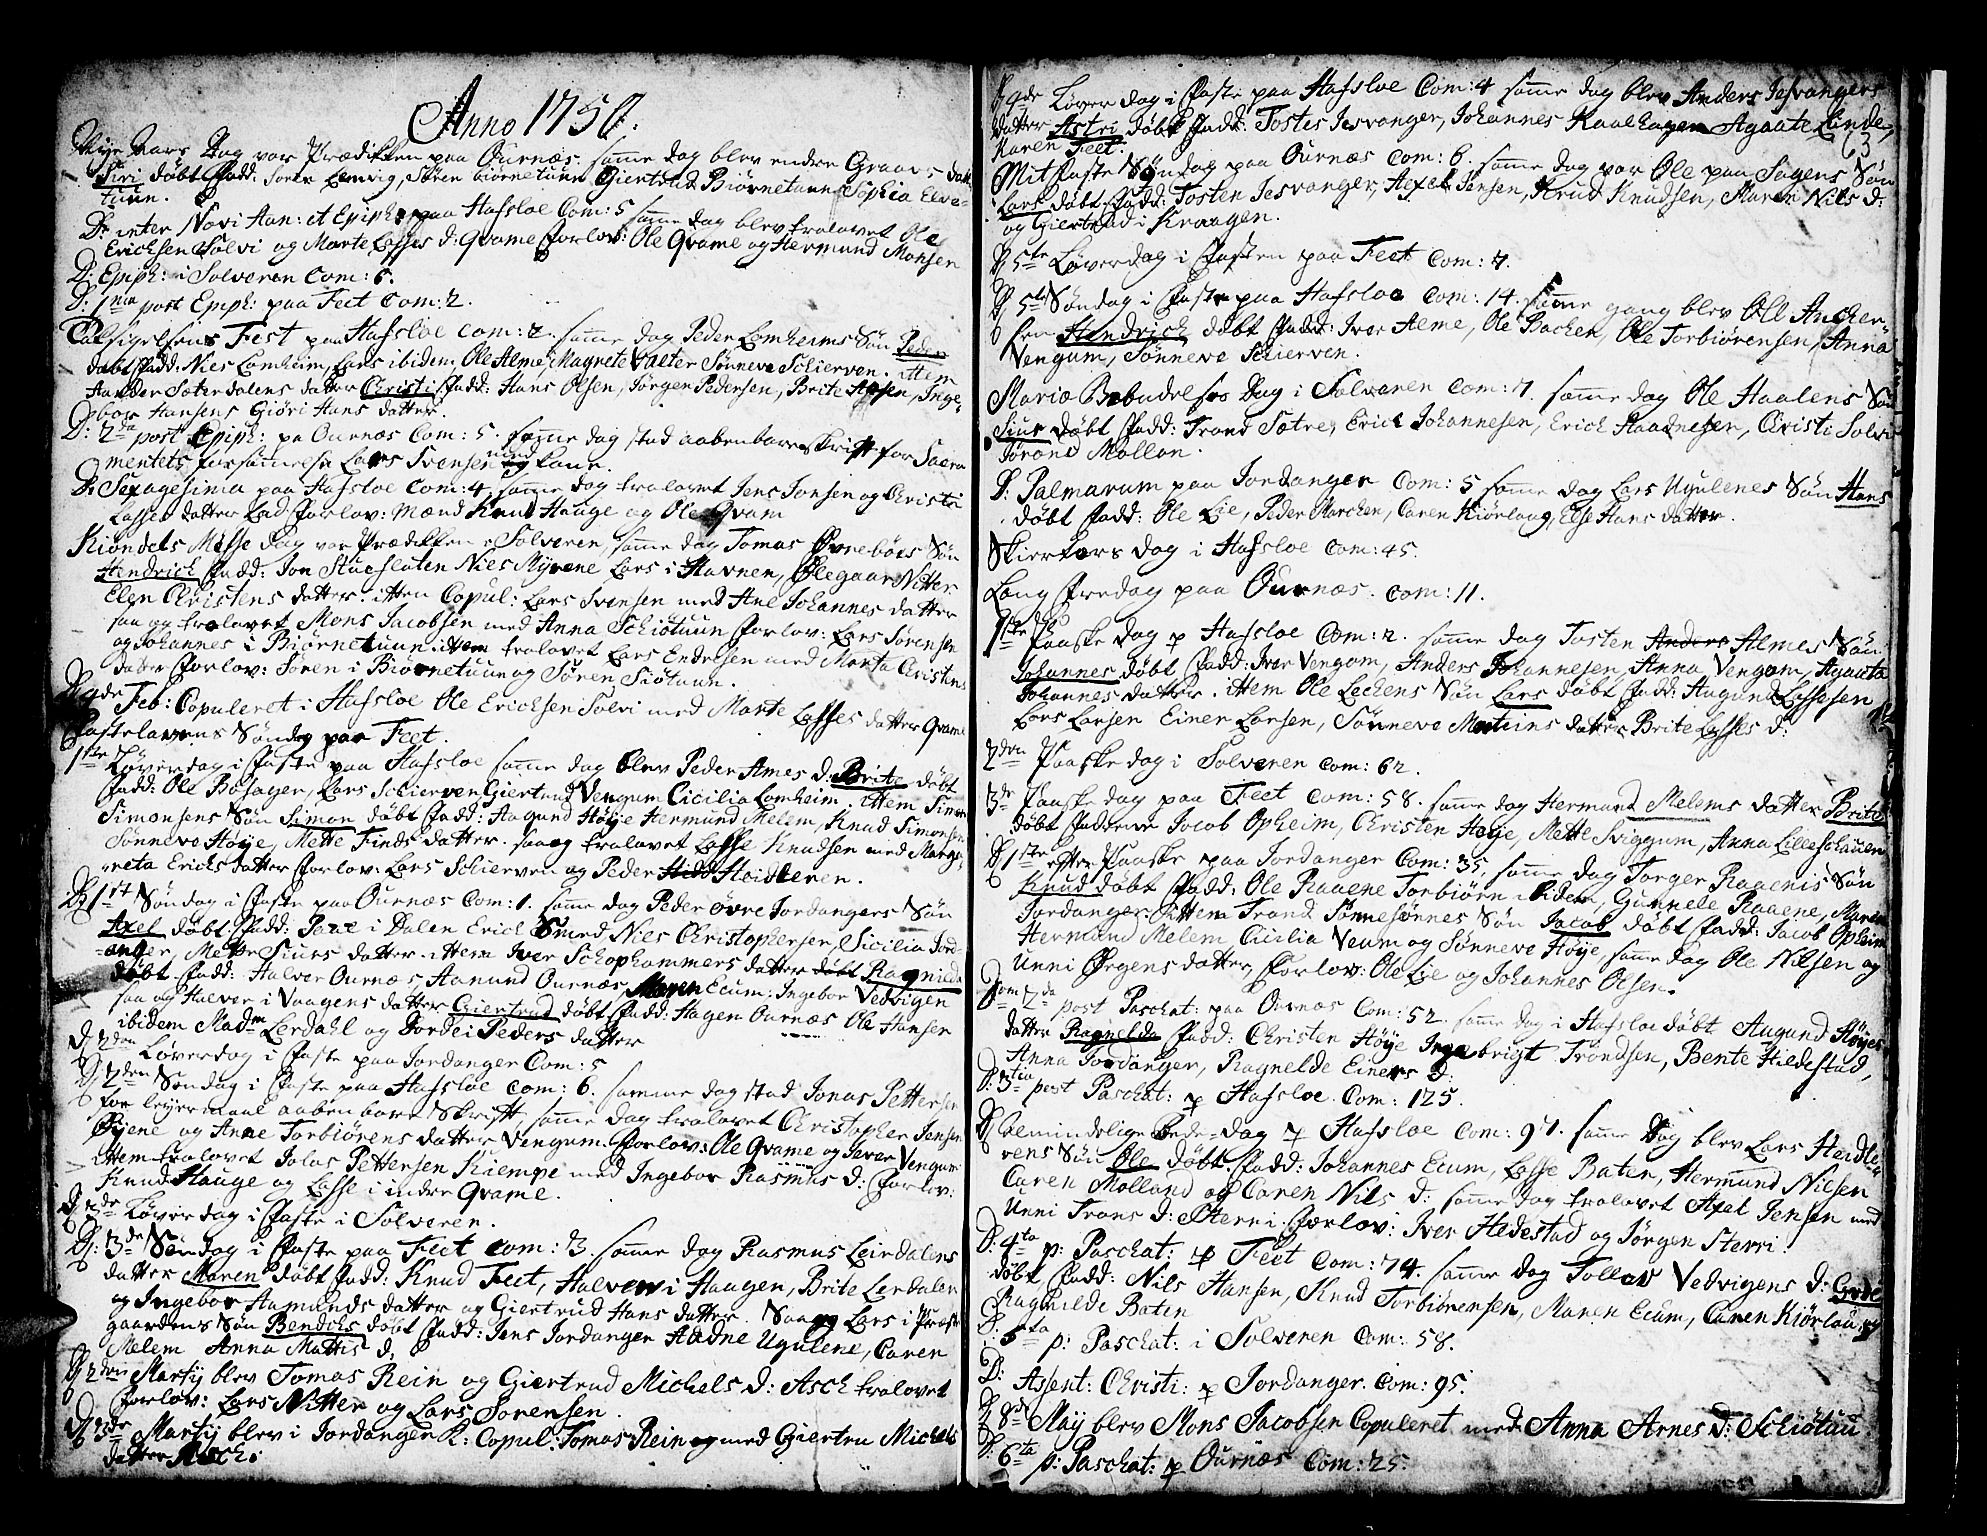 Anno 1750.
Nye Aars Dag var Prædikken paa Ournæs. samme dag blev endre Graavs datt
Siri døbt Fadd: Søren Lemvig, Søren Biørnetuun Giertrud Biørnetuun Sophia Elve-
tuun.
D: inter Novi Aan: et Epiph: paa Hafsloe Com: 5 samme dag blev trolovet Ole
Ericksen Solvi og Marte Lasses d: Qvame Forlov: Ole Qvame og Hermund Monsen
D: Epiph: i Solveren Com: 6.
D: 1ma post Epiph: paa Feet Com: 2.
Talsigelsens Fest paa Hafsloe Com: 2. samme dag Peder Lomheims Søn Peder
døbt Fadd: Nies Lomheim, Lars ibidem, Ole Alme, Magnete Valter Sønneve Schierven. ittem
Aander Sæterdalens datter Christi Fadd: Hans Olsen, Jørgen Pedersen, Brite Hansen, Inge-
bor Hansens Giøri Hans datter.
D: 2da post Epiph: pa Ournæs Com: 5. samme dag stod aabenbare Skrifft for Sacra
mentets forsømmelse Lars Svensen med Kone.
D: Sexagesima paa Hafsloe Com: 4, samme dag trolovet Jens Jonsen og Christi
Lasses datter Forlov: Mænd Knud Hauge og Ole Qvam
Kiøndels Misse Dag var Prædikken i Solveren, samme dag Tomas Øvrebøes Søn
Hendrich Fadd: Jon Stuesluten Nies Myrene Lars i Havnen, Olegaar Nitter
Elen Christens datter. ittem Copul: Lars Svensen med Ane Johannes datter
saa og trolovet Mons Jacobsen med Anna Schiøtuun Forlov: Lars Sørensen
og Johannes i Biørnetuun ittem trolovet Lars Endresen med Marta Christens
datter Forlov: Søren i Biørnetuun og Søren Siøtuun.
D: 4de Feb: Copuleret i Hafsloe Ole Ericksen Solvi med Marte Lasses datter Qvame
Fastelavens Søndag paa Feet.
1ste Løverdag i Faste paa Hafsloe samme dag blev Peder Ames d: Brite døbt
Fadd: Ole Bøsager, Lars Schierven Giertrud Vengum Cicilia Lomheim. ittem Simon
Simonsens Søn Simon døbt Fadd: Hagund Høye Hermund Melem, Knud Simonsen
Sønneve Høye, Mette Finds datter. saa og trolovet Lasse Knudsen med Marg-
reta Ericks datter Forlov: Lars Schierven og Peder Heidleren.
D: 1st Søndag i Faste paa Ournæs Com: 1. samme dag Peder øvre Jordangers Søn
Axel døbt Fadd: Peve i Dalen Erick Smed Nies Christophersen, Cicilia Jord-
anger, Mette Siurs datter. ittem Iver Schophammers datter døbt Ragnilda
døbt Fadd: Halver Ournæs, Aamund Ournæs Maren Ecum: Ingebor Vedvigen
saa og Halver i Vaagens datter Giertrud døbt Fadd: Hagen Ournæs Ole Hansen
ibidem Madm Lerdahl og Dordei Peders datter
D: 2den Løverdag i Faste paa Jordanger Com: 5
D: 2den Søndag i Faste paa Hafsloe Com: 6. samme dag stod Jonas Pettersen
for leyermaal aabenbare Skrifft, samme dag trolovet Christopher Jensen
Øyene og Anne Torbiørens datter Vengum. Forlov: Ole Qvame og Iever Vengum
ittem trolovet Jolas Pettersen Kiempe med Ingebor Rasmus D: Forlov:
Knud Hauge og Lasse i indre Qvame.
D: 3de Løverdag i Faste i Solveren.
D: 3de Søndag i Faste paa Feet Com: 3. samme dag Rasmus Leirdalens
datter Maren døbt Fadd: Knud Feet, Halver i Haugen, Brite Lerdalen
og Ingebor Aamunds datter og Giertrud Hans datter. Saa og Lars i Præst
gaardens Søn Bendichs døbt Fadd: Jens Jordanger Aadne Ugulene, Caren
Melem Anna Mattis d.
D: 2den Martij blev Tomas Rein og Giertrud Michels D: Asch trolovet
Forlov: Lars Nitter og Lars Sorensen.
D: 3de Martij blev i Jordanger K: Copul: Tomas Rein og med Giertru Michels
datter Asch.
D: 4de Løverdag i Faste paa Hafsloe Com: 4 samme dag blev Anders Jesvangers
datter Astri døbt Fadd: Tostes Jesvanger, Johannes Kaalhagen Agaate Linde,
Karen Feet. 3
Mitfaste Søndag paa Ournæs Com: 6. samme dag var Ole paa Sagens Søn
Lars døbt Fadd: Tosten Jesvanger, Aexel Jensen, Knud Knudsen, Maren Nils d:
og Giertrud i Kraagen.
D: 5te Løverdag i Fasten paa Feet Com: 7.
D: 5te Søndag i Faste paa Hafsloe Com: 14. samme gang blev Oll Ancker-
sen Hendrich døbt Fadd: Iver Alme, Ole Backen, Ole Torbiørensen, Anna
Vengum, Sønneve Schierven.
Mariæ Bebudelses Dag i Solveren Com: 7. samme dag Ole Haalens Søn
Siur døbt Fadd: Trond Sætre, Erick Johannesen, Erich Haadnesen, Christi Solvi
Jørand Mollan.
D: Palmarum paa Jordanger Com: 5 samme dag Lars Ugulenes Søn Hans
døbt Fadd: Ole Lie, Peder Marchen, Caren Kiørlaug, Else Hans datter.
Skiertors dag i Hafsloe Com: 45.
Lang fredag paa Ournæs. Com: 11.
1ste Paaske dag p Hafsloe Com: 2. samme dag Tosten Anders Almes Søn
Johannes døbt Fadd: Iver Vengum, Anders Johannesen, Anna Vengom, Agaata
Johannes datter. ittem Ole Leckens Søn Lars døbt Fadd: Haagund Lassesen
Lars Larsen Einer Larsen, Sønneve Martins datter Brite Lasses d:
2den Paaske dag i Solveren Com: 62.
3de Paaske dag paa Feet Com: 58. samme dag Hermund Melems datter Brite
døbt Faddere Jacob Opheim, Christen Høye, Mette Sviggum, Anna Lilleschauen
D: 1ste efter Paaske paa Jordanger Com: 35. samme dag Torger Raaenis Søn
Knud døbt Fadd: Ole Raaene Torbiørn ibidem, Gunnele Raaene, Maren
Jordanger. Ittem Trond Sønnesønnes Søn Jacob døbt Fadd: Jacob Opheim
Hermund Melem, Cicilia Veum og Sønneve Høye, samme dag Ole Nilsen og
Unni Ørgens datter, Forlov: Ole Lie og Johannes Olsen.
Dom 2da post Paschat: paa Ournæs Com: 52. samme dag i Hafsloe døbt Augund Høyes
datter Ragnelda Fadd: Christen Høye Ingebrigt Trondsen, Bente Hildestad,
Anna Jordanger, Ragnelde Einers d:
D: 3tia post Paschat: p Hafsloe. Com: 125.
D: Almindelige Bede-dag p Hafsloe Com: 97. samme Dag blev Lars Heidle-
rens Søn Ole døbt. Fadd: Johannes Ecum, Lasse Baten, Hermund Nilsen
Caren Molland og Caren Nils D: samme dag trolovet Axel Jensen med
Unni Trons d: Sterri. Forlov: Iver Hedestad og Jørgen Sterri.
D: 4ta p: Paschat: p Feet Com: 74. samme dag Tollov Vedvigens d: Gyde
døbt Fadd: Nils Hansen, Knud Torbiørensen, Maren Ecum, Caren Kiørlaug
Ragnilde Baten
D: 5ta p: Paschat: i Solveren Com: 58.
D: Assent: Christi: p Jordanger. Com: 95.
D: 8de May blev Mons Jacobsen Copuleret med Anna Arnes D: Schiøtuu
D: 6ta p: Paschat: p Ournæs Com: 25.